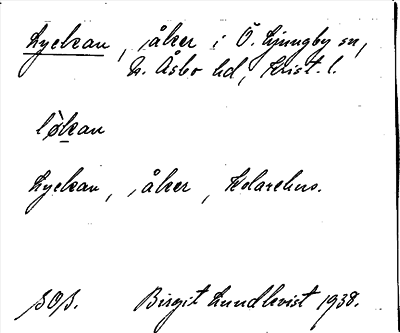 Lyckan, åker i Ö. Ljungby sn,
N. Åsbo hd, Krist. l.
lø̀kan
Lyckan, åker, Kolarehus.
SOS. Birgit Lundkvist 1938.